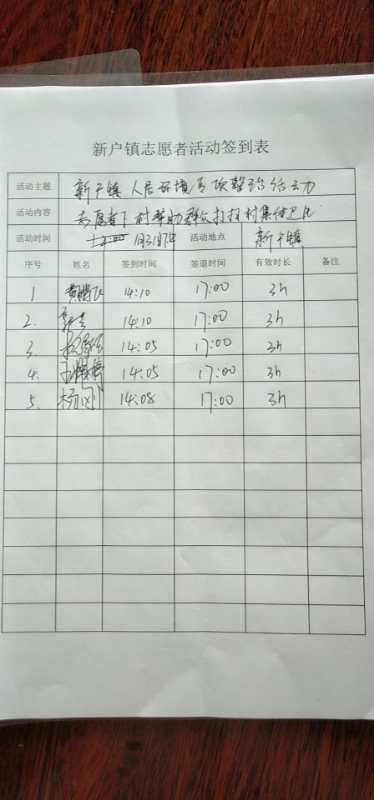 新户镇志愿者活动签到表
活动主题 新户镇人居环境专项整治活动
活动内容 志愿者下村帮助群众打扫村集体卫生
活动时间 活动地点 新户镇
序号 姓名 签到时间 签退时间 有效时长 备注
1 14:10 17:00 3h
2. 14:10 17:00 3h
3 14:05 17:00 3h
4. 14:05 17:00 3h
5. 杨刚 14:08 17:00 3h